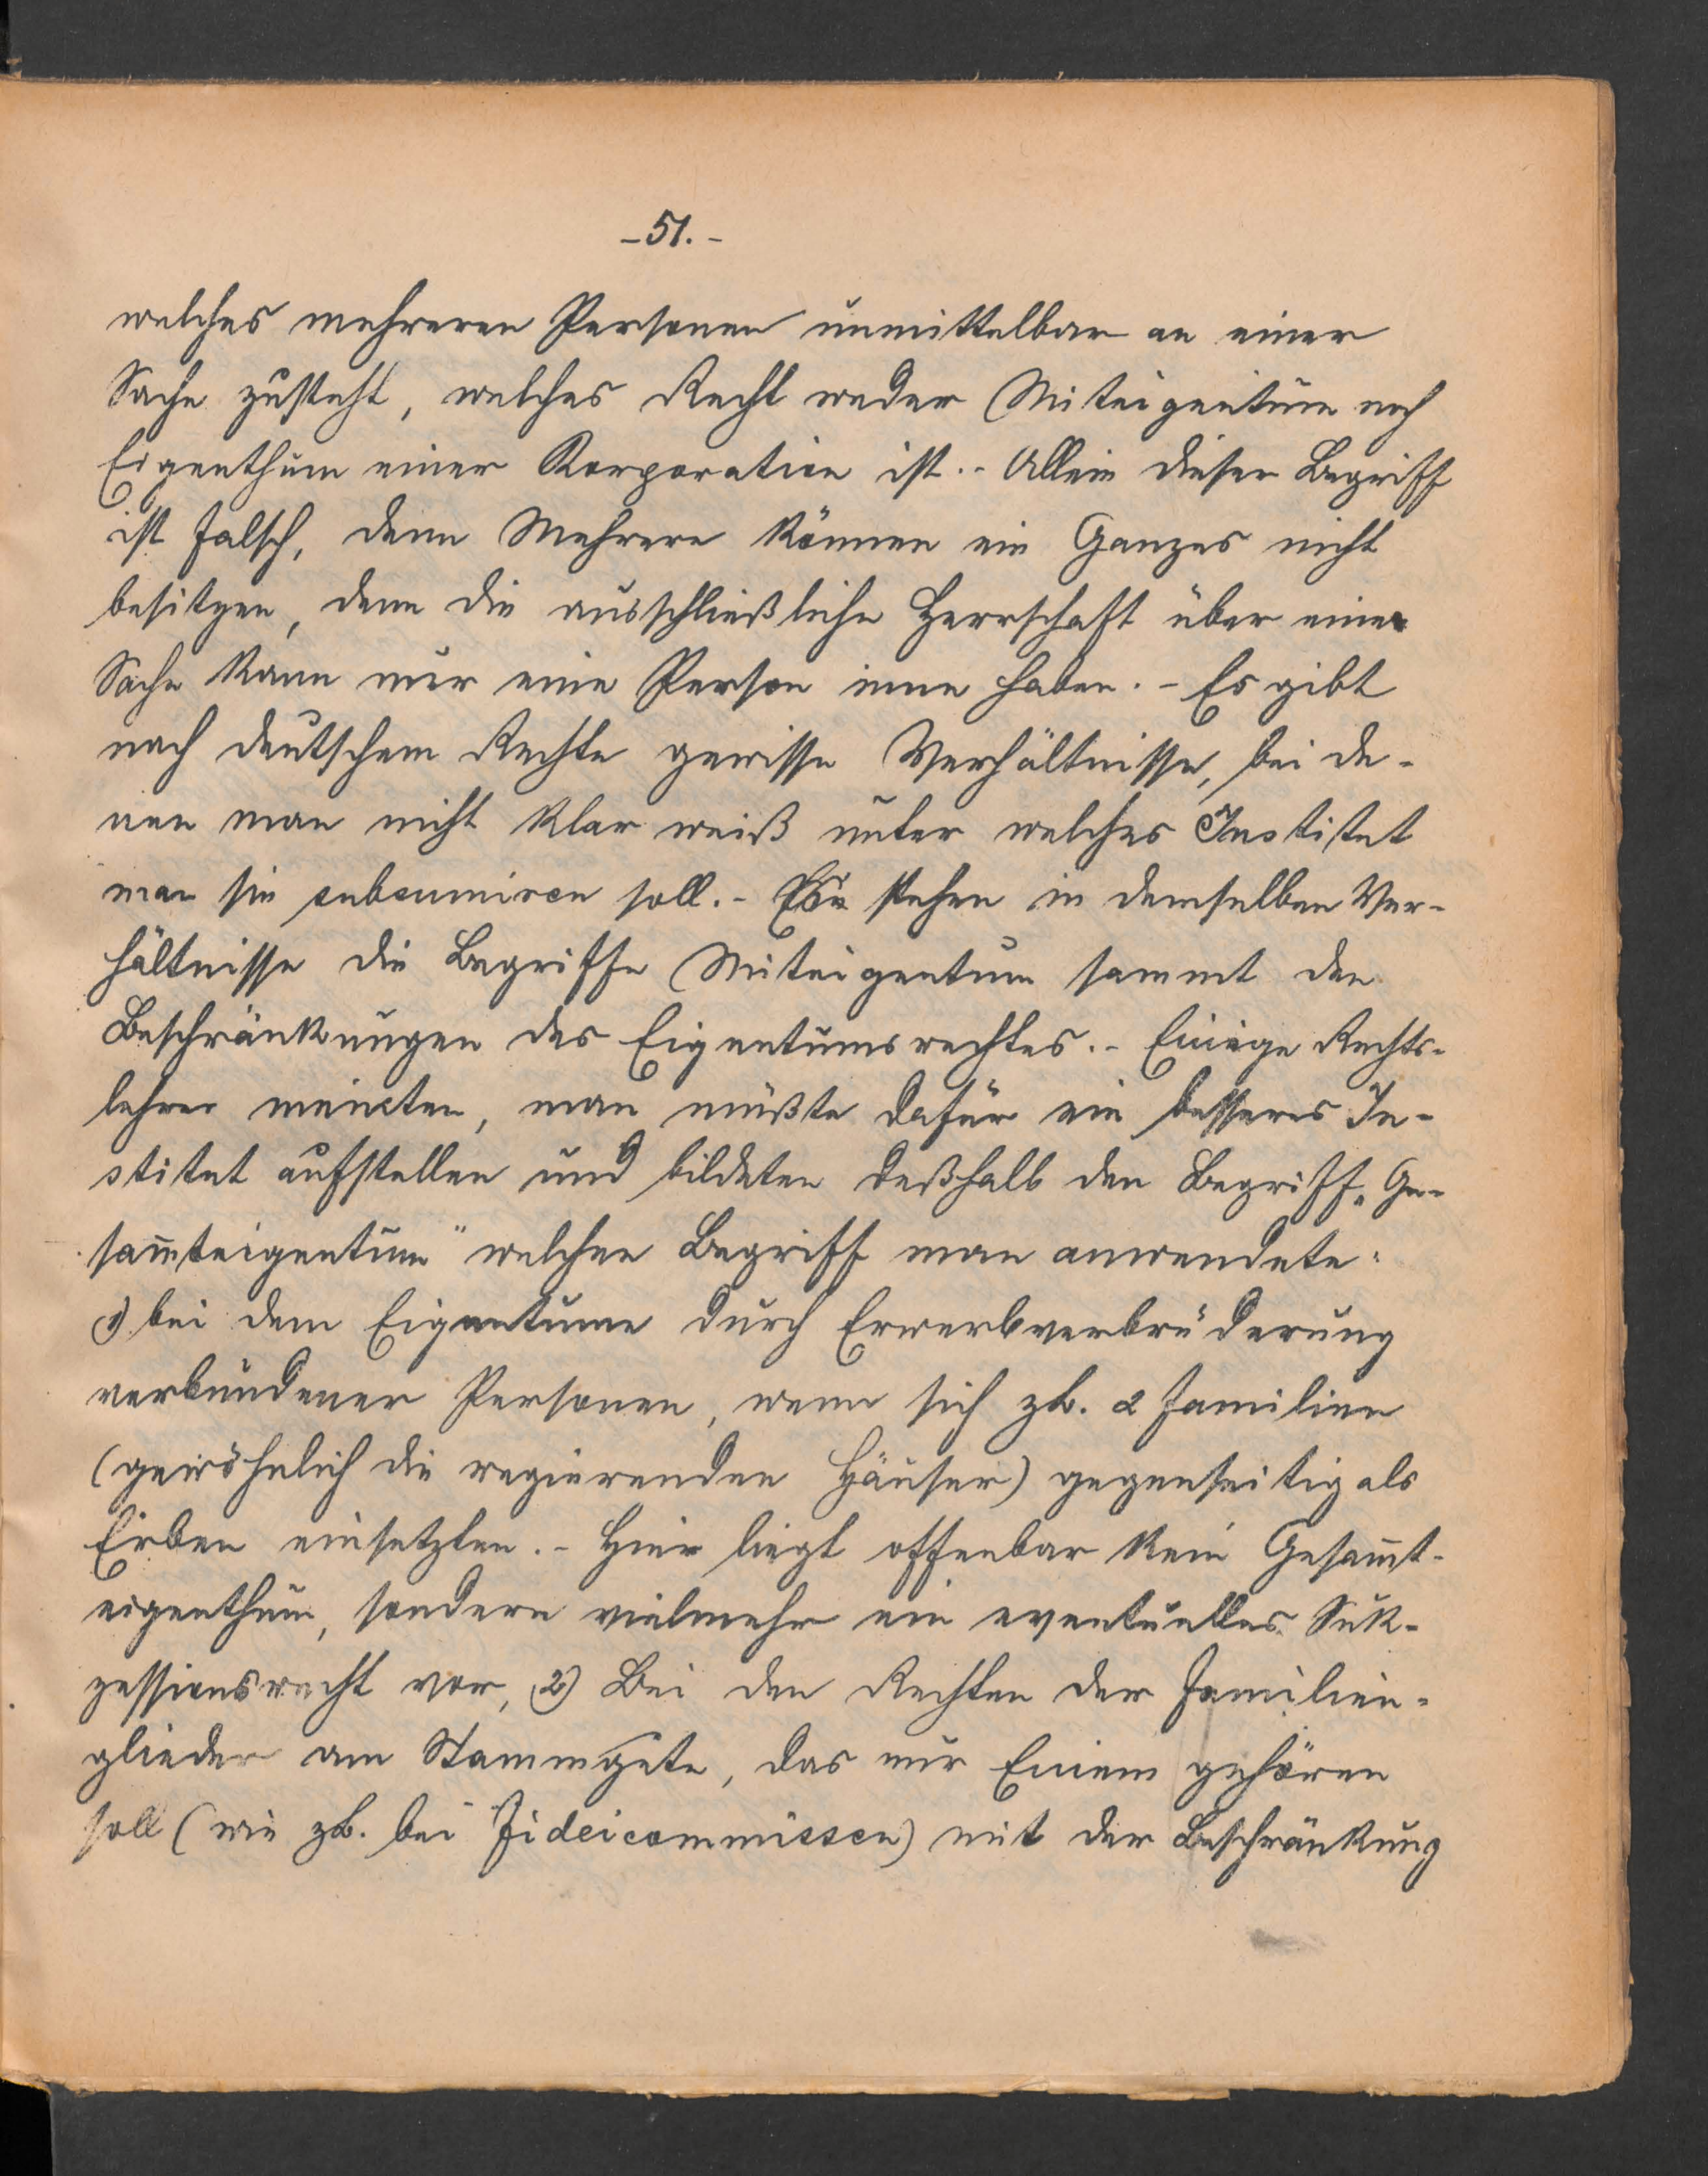 -51.-
welches mehreren Personen unmittelbar an einer
Sache zusteht, welches Recht weder Miteigentum noch
Eigenthum einer Korporation ist.- Allein dieser Begriff
ist falsch, denn Mehrere können ein Ganzes nicht
besitzen, denn die ausschließliche Herrschaft über eine
Sache kann nur eine Person inne haben.- Es gibt
nach deutschem Rechte gewisse Verhältnisse, bei de-
nen man nicht klar weiß unter welches Institut
man sie subsumiren soll.- stehen in demselben Ver-
hältnisse die Begriffe Miteigentum sammt den
Beschränkungen des Eigentumsrechtes.- Einige Rechts-
lehrer meinten, man müßte dafür ein besseres In-
stitut aufstellen und bildeten deßhalb den Begriff „Ge-
sam̄teigentum" welchen Begriff man anwendete:
1) bei dem Eigentume durch Erwerbverbrüderung
verbundener Personen, wenn sich zb. 2 Familien
(gewöhnlich die regierenden Häuser) gegenseitig als
Erben einsetzten.- Hier liegt offenbar kein Gesam̄t-
eigenthum, sondern vielmehr ein eventuelles Suk-
zessionsrecht vor, 2) Bei den Rechten der Familien-
glieder am Stammgute, das nur Einem gehören
soll (wie zb. bei Fideicommissen) mit der Beschränkung